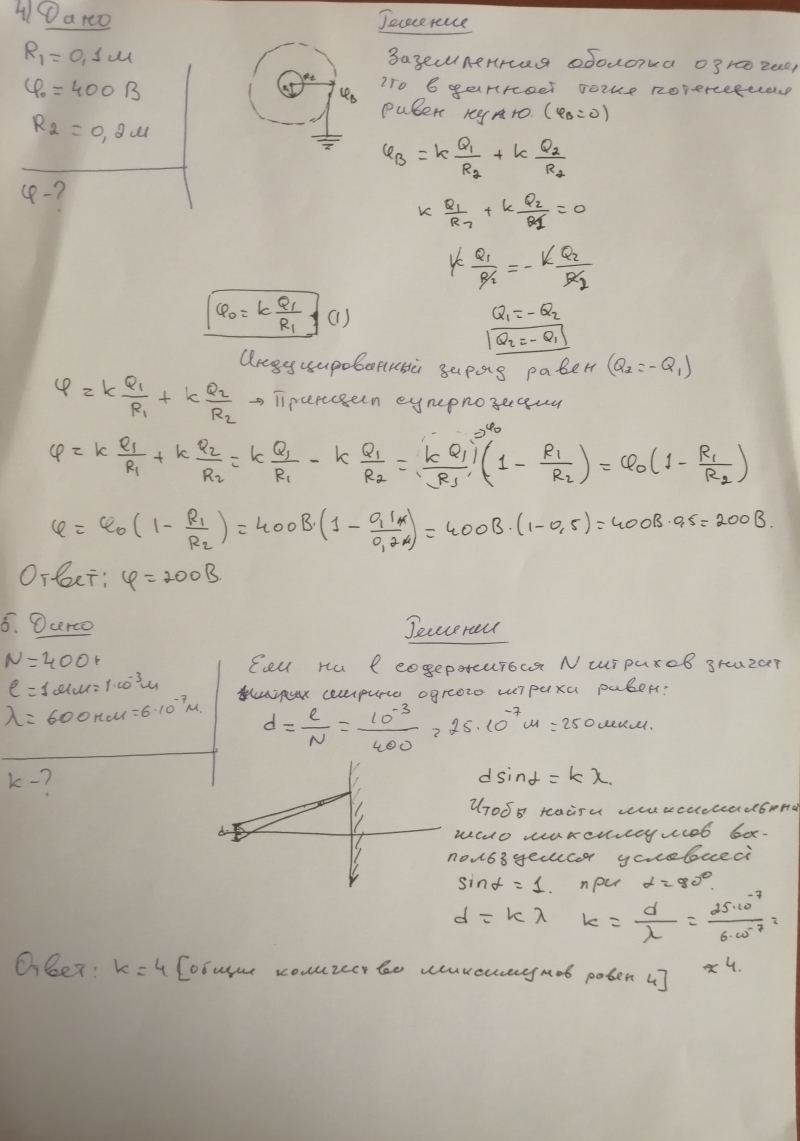 4) Дано
Решение
R₁ = 0,1 м
φ₀ = 400 В
R₂ = 0,2 м
φ - ?
R₂
φB
Заземленная оболочка означает,
что в данной точке потенциал
равен нулю. (φB = 0)
φB = k Q₁/R₂ + k Q₂/R₂
k Q₁/R₂ + k Q₂/R₂ = 0
k Q₁/R₂ = - k Q₂/R₂
φ₀ = k Q₁/R₁ (1)
Q₁ = - Q₂
Q₂ = - Q₁
Индуцированный заряд равен (Q₂ = - Q₁)
φ = k Q₁/R₁ + k Q₂/R₂ → Принцип суперпозиции
φ = k Q₁/R₁ + k Q₂/R₂ = k Q₁/R₁ - k Q₁/R₂ = k Q₁/R₁ (1 - R₁/R₂) = φ₀ (1 - R₁/R₂)
→ φ₀
φ = φ₀ (1 - R₁/R₂) = 400В·(1 - 0,1м/0,2м) = 400В·(1-0,5) = 400В·0,5 = 200В.
Ответ: φ = 200В.
5. Дано
Решении
N = 400
ℓ = 1мм = 1·10⁻³ м
λ = 600 нм = 6·10⁻⁷ м.
k - ?
Если на ℓ содержиться N штрихов значит
ширина одного штриха равен:
d = ℓ/N = 10⁻³/400 = 25·10⁻⁷ м = 250 мкм.
d
d sin α = k λ.
Чтобы найти максимальная
число максимумов вос-
пользуемся условией
sin α = 1. при α = 90°.
d = k λ k = d/λ = 25·10⁻⁷/6·10⁻⁷ =
≈ 4.
Ответ: k = 4 [общие количество максимумов равен 4]